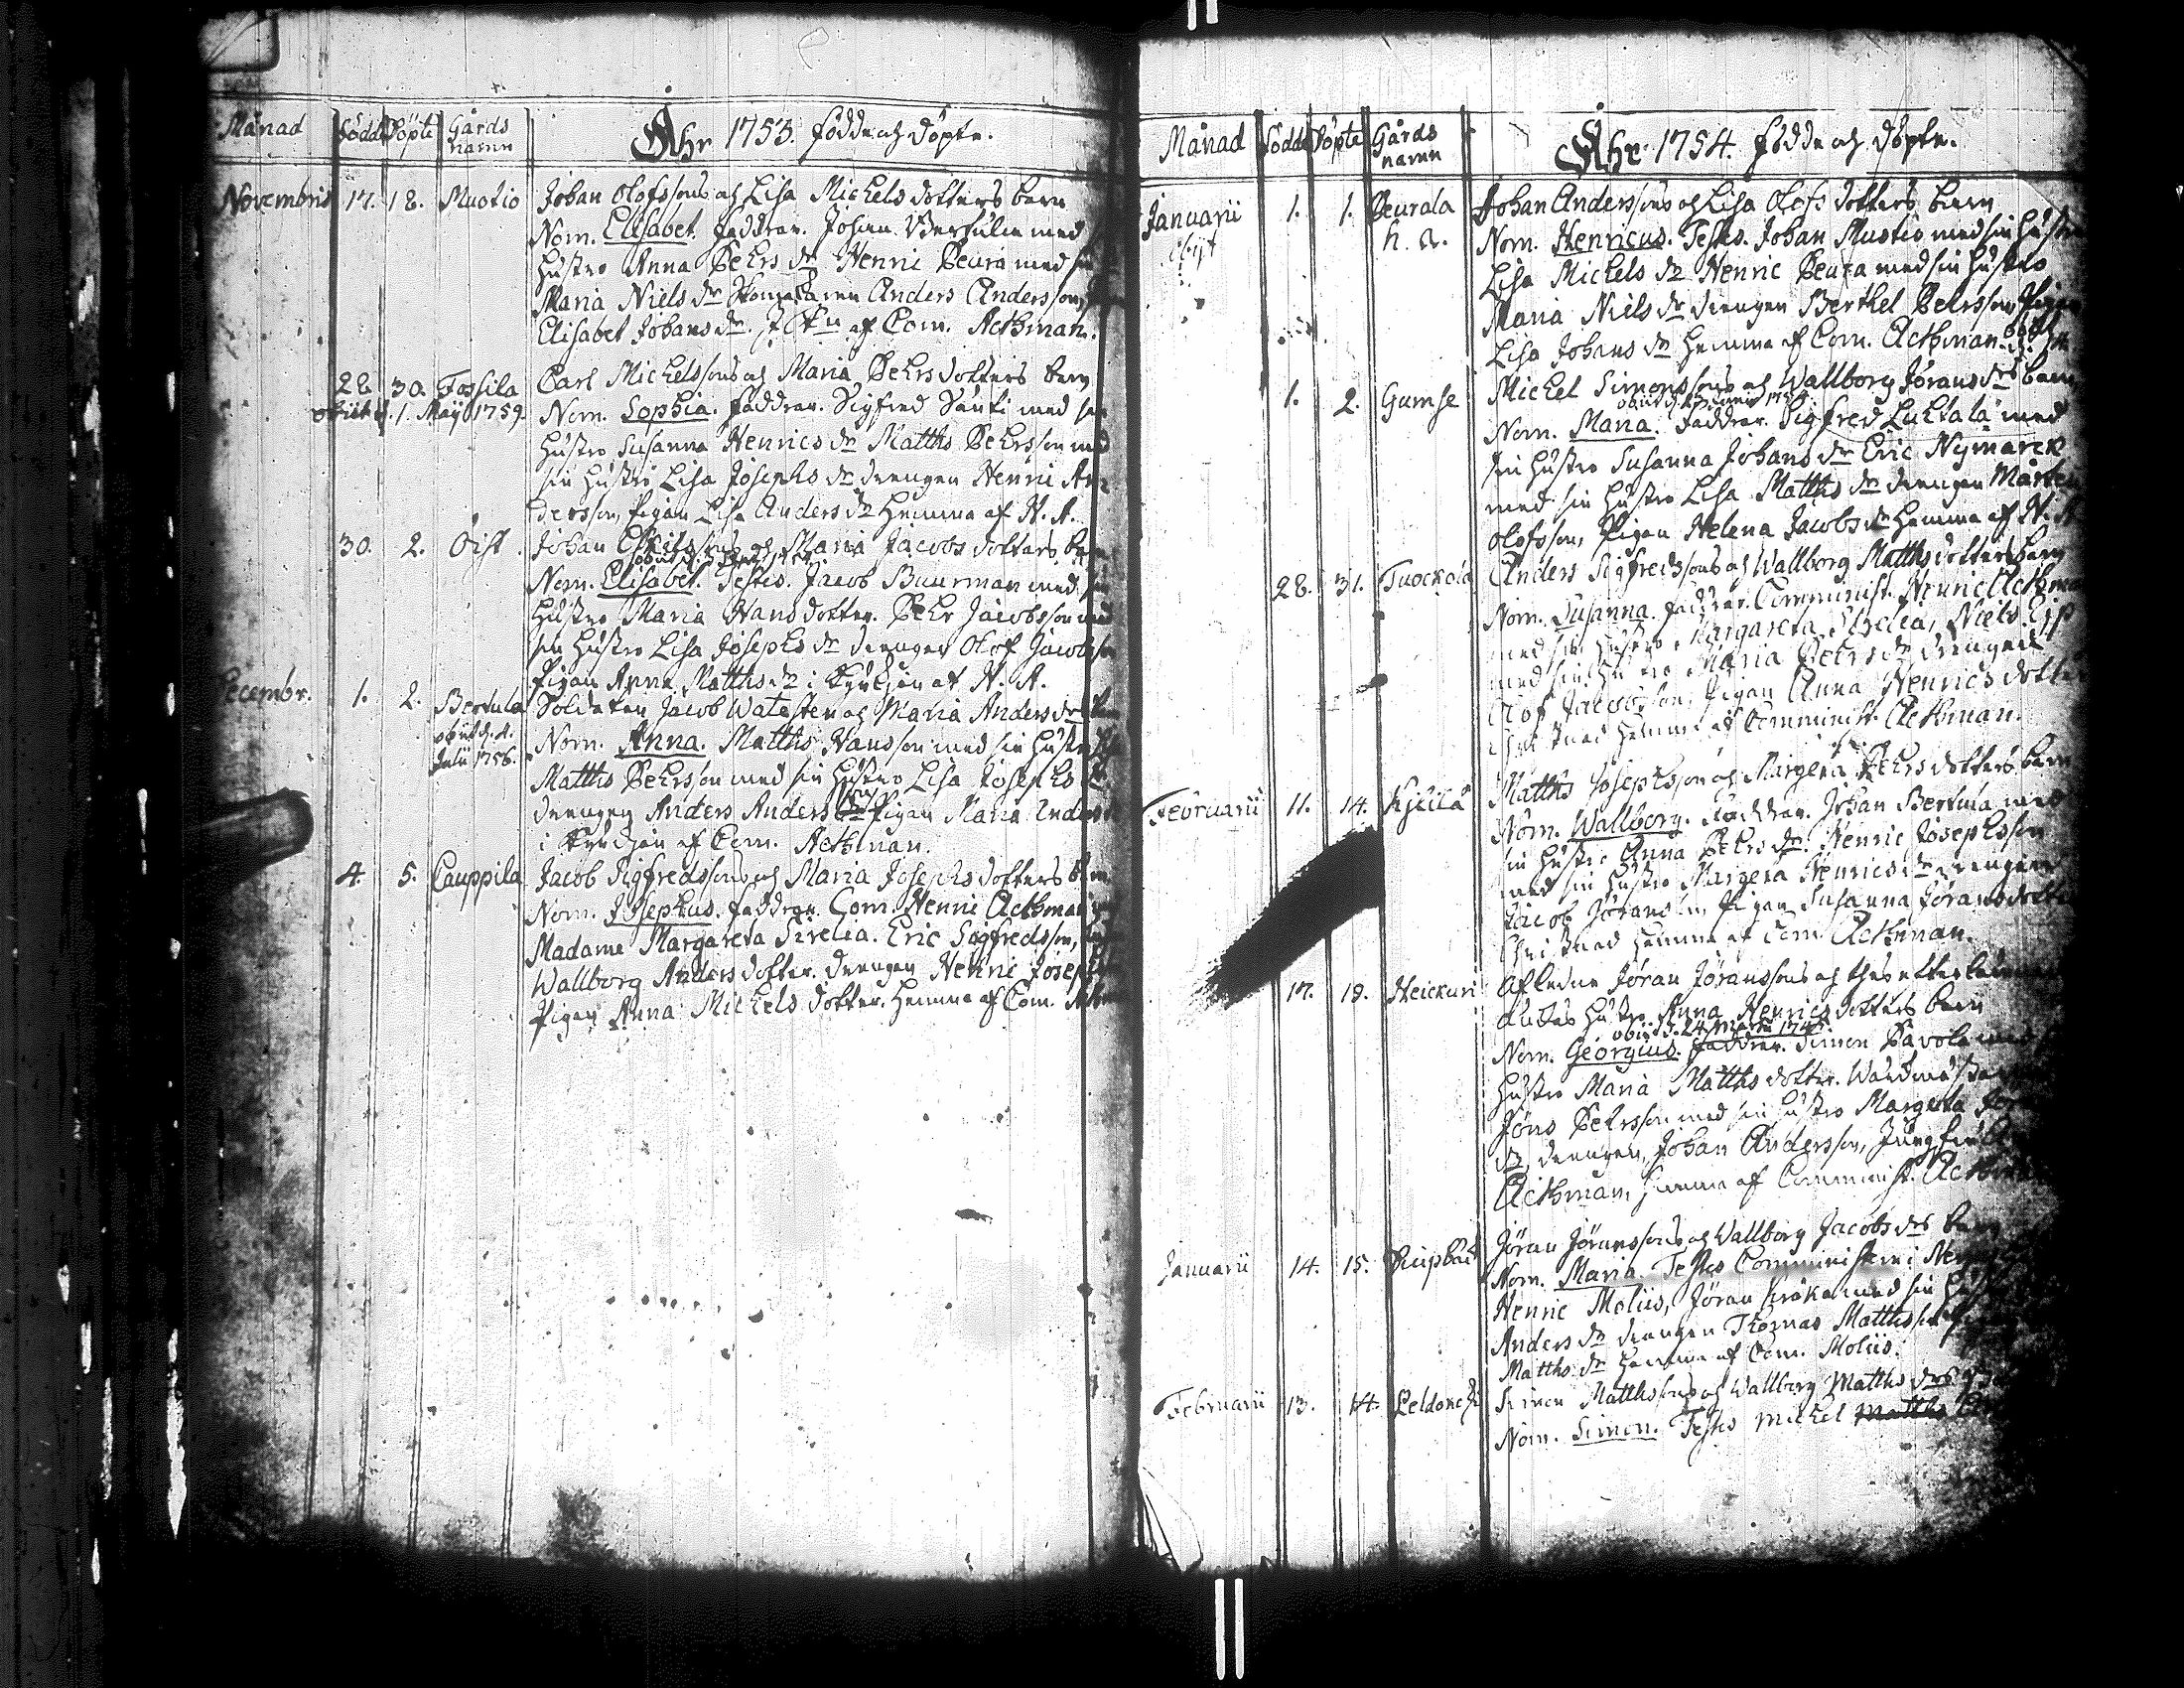 Månad Född Döpte Gårds namn Åhr 1753. födde och döpte.
Novembris 17. 18. Muotio Johan Olofssons och Lisa Michels dotters barn
Nom. Elisabet. faddrar. Johan med
hustru Anna Pehrs dr Henric Peura med sin
Maria Niels dr Anders Andersson,
Elisabet Johans dr. af Com. Aethman.
28 30. Fossila Carl Michelssons och Maria Pehrs dotters barn
obiit d. 1. Maÿ 1759. Nom. Sophia. faddrar. Sigfred Santi med sin
hustru Susanna Henrics dr Matths Pehrsson med
sin hustru Lisa Josephs dr drengen Henric An-
dersson, pigan Lisa Anders dr hemma af H. A.
30. 2. Öist. Johan Eskilssons och Maria Jacobs dotters barn
Nom. Elisabet. Testes. Jacob Buurman med sin
hustru Maria Hans dotter. Pehr Jacobsson med
sin hustru Lisa Josephs dr drengen Olof Jacobsson
pigan Anna Matths dr i Kyrkian af H. A.
Decembr. 1. 2. Bertula Soldaten Jacob Watasten och Maria Anders drs
obiit d. 4. Nom. Anna. Matths Hansson med sin hustru
Julii 1756. Matths Pehrsson med sin hustru Lisa Josephs dr
drengen Anders Anders son pigan Maria Anders
i Kyrkian af Com. Aethman.
4. 5. Cauppila Jacob Sigfredssons och Maria Josephs dotters barn
Nom. Josephus. faddrar. Com. Henric Aethman
Madame Margareta Sirelia. Eric Sigfredsson,
Wallborg Anders dotter. drengen Henric Josephs
Pigan Anna Michels dotter. hemma af Com.
Månad Född Döpte Gårds namn Åhr 1754. födde och döpte.
Januarii 1. 1. Peurala Johan Anderssons och Lisa Olofs dotters barn
h. a. Nom. Henricus. Testes. Johan Muotio med sin hustru
Lisa Michels dr Henric Peura med sin hustru
Maria Niels dr drengen Berthel Pehrsson, Pigan
Lisa Johans dr hemma af Com. Aethman.
1. 2. Gumse Michel Simonssons och Wallborg Jörans drs barn
Nom. Maria. faddrar. Sigfred Luhtala med
sin hustru Susanna Johans dr Eric Nymarck
med sin hustru Lisa Matths dr drengen Mårten
Olofsson, Pigan Helena Jacobs dr hemma af H. A.
28. 31. Tuorkola Anders Sigfredssons och Wallborg Matths dotters barn
Nom. Susanna. faddrar. Comminist. Henric Aethman
med sin hustru Margareta Sirelia, Niels
med sin hustru Maria Pehrs dr drengen
Olof Jacobsson, Pigan Anna Henrics dotter
Christnad hemma af Comminist. Aethman.
Februarii 11. 14. Kjälä Matths Josephsson och Margeta Pehrs dotters barn
Nom. Wallborg. faddrar. Johan Bertula med
sin hustru Anna Pehrs dr. Henric Josephsson
med sin hustru Margeta Henrics dr drengen
Jacob Jöransson, Pigan Susanna Jörans dotter
Christnad hemma af Com Aethman.
17. 18. Heickuri Afledne Jöran Jöranssons och thes
hustru Anna Henrics dotters barn
obiit d. 24 Martii
Nom. Georgius. faddrar. Simon Pavola med
hustru Maria Matths dotter.
Jöns Pehrsson med sin hustru Margeta
dr, drengen, Johan Andersson, Jungfru
Aethman, hemma af Comminist.
Januarii 14. 15. Jöran Jöranssons och Wallborg Jacobs drs barn
Nom. Maria. Testes Comministern i
Henric Moliis, Jöran Kråka med sin hustru
Anders dr drengen Thomas Matthsson
Matths dr hemma af Com. Moliis.
Februarii 13. 14. Simon Matthssons och Wallborg Matths drs
Nom. Simon. Testes Michel Matths